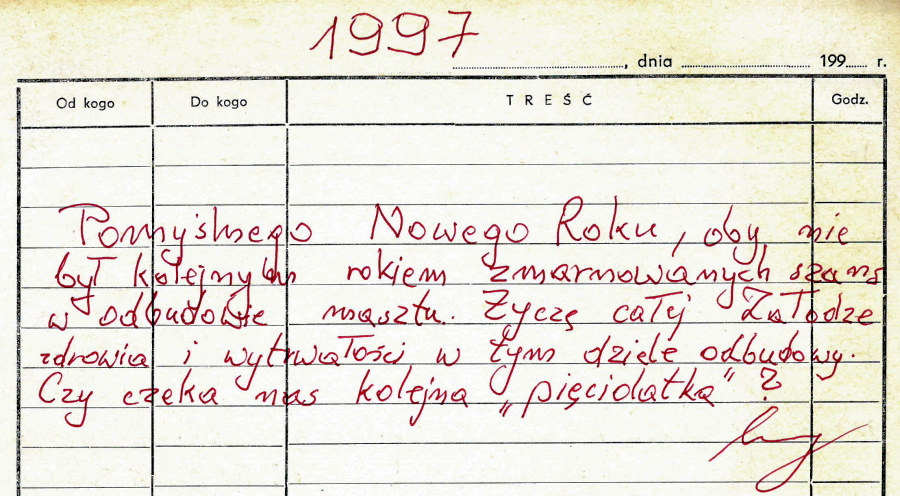 1997
, dnia 199 r.
Od kogo Do kogo TREŚĆ Godz.
Pomyślnego Nowego Roku, oby nie
był kolejnym rokiem zmarnowanych szans
w odbudowie masztu. Życzę całej Załodze
zdrowia i wytrwałości w tym dziele odbudowy.
Czy czeka nas kolejna „pięciolatka"?